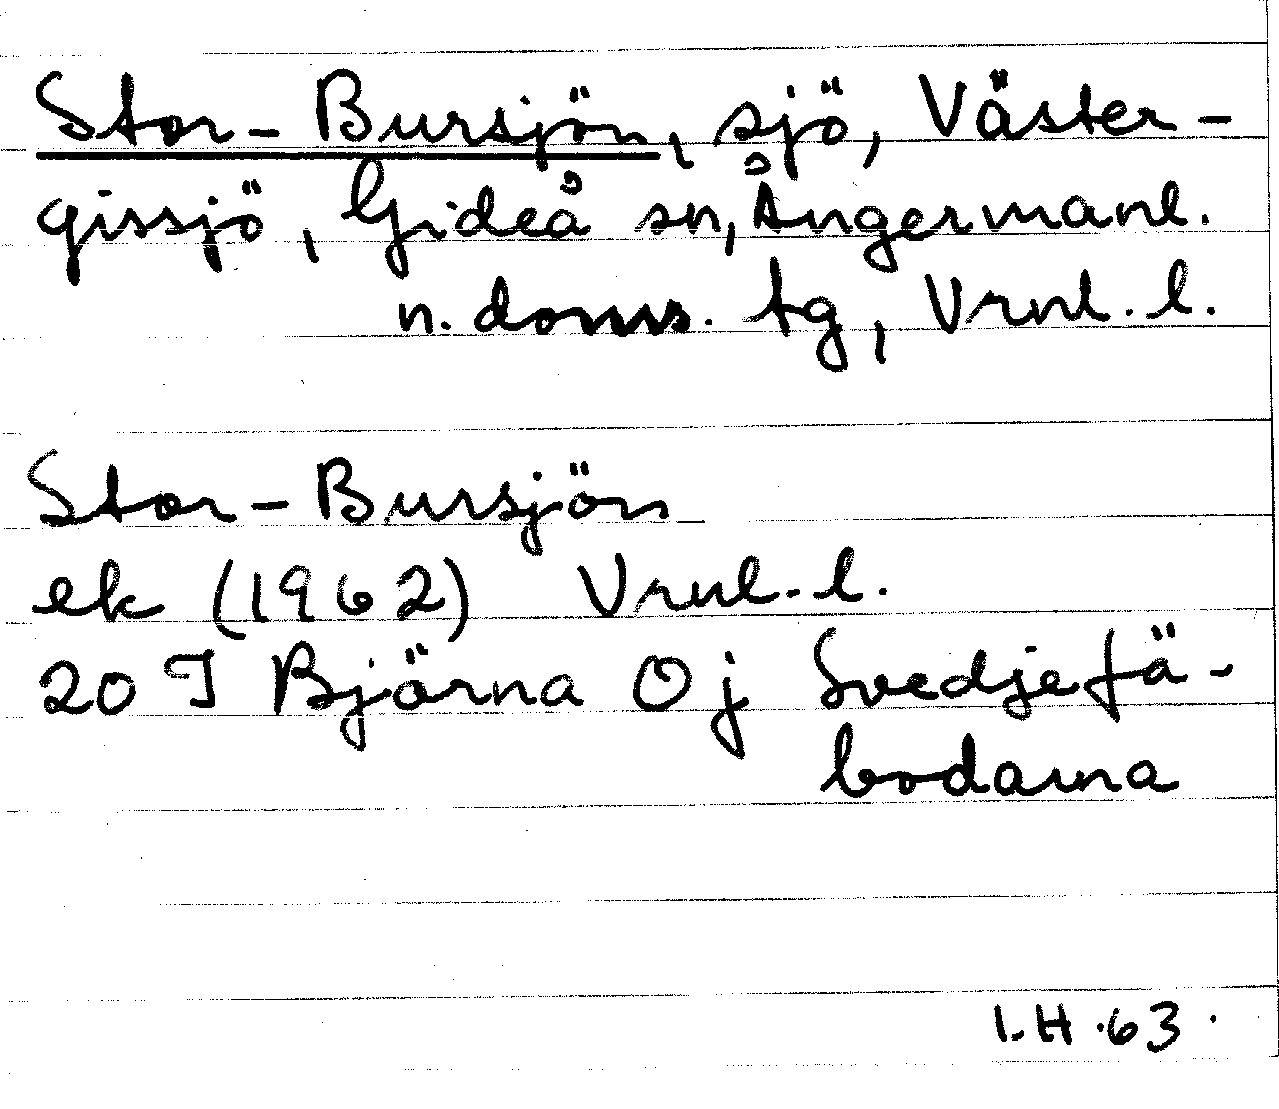 Stor-Bursjön, sjö, Väster-
gissjö, Gideå sn, Ångermanl.
n. doms. tg, Vrnl. l.
Stor-Bursjön
ek (1962) Vrnl. l.
20 I Björna Oj Svedjefä-
bodarna
I.H. 63.